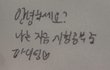 안녕하세요?
나는 지금 시험공부 중
이다